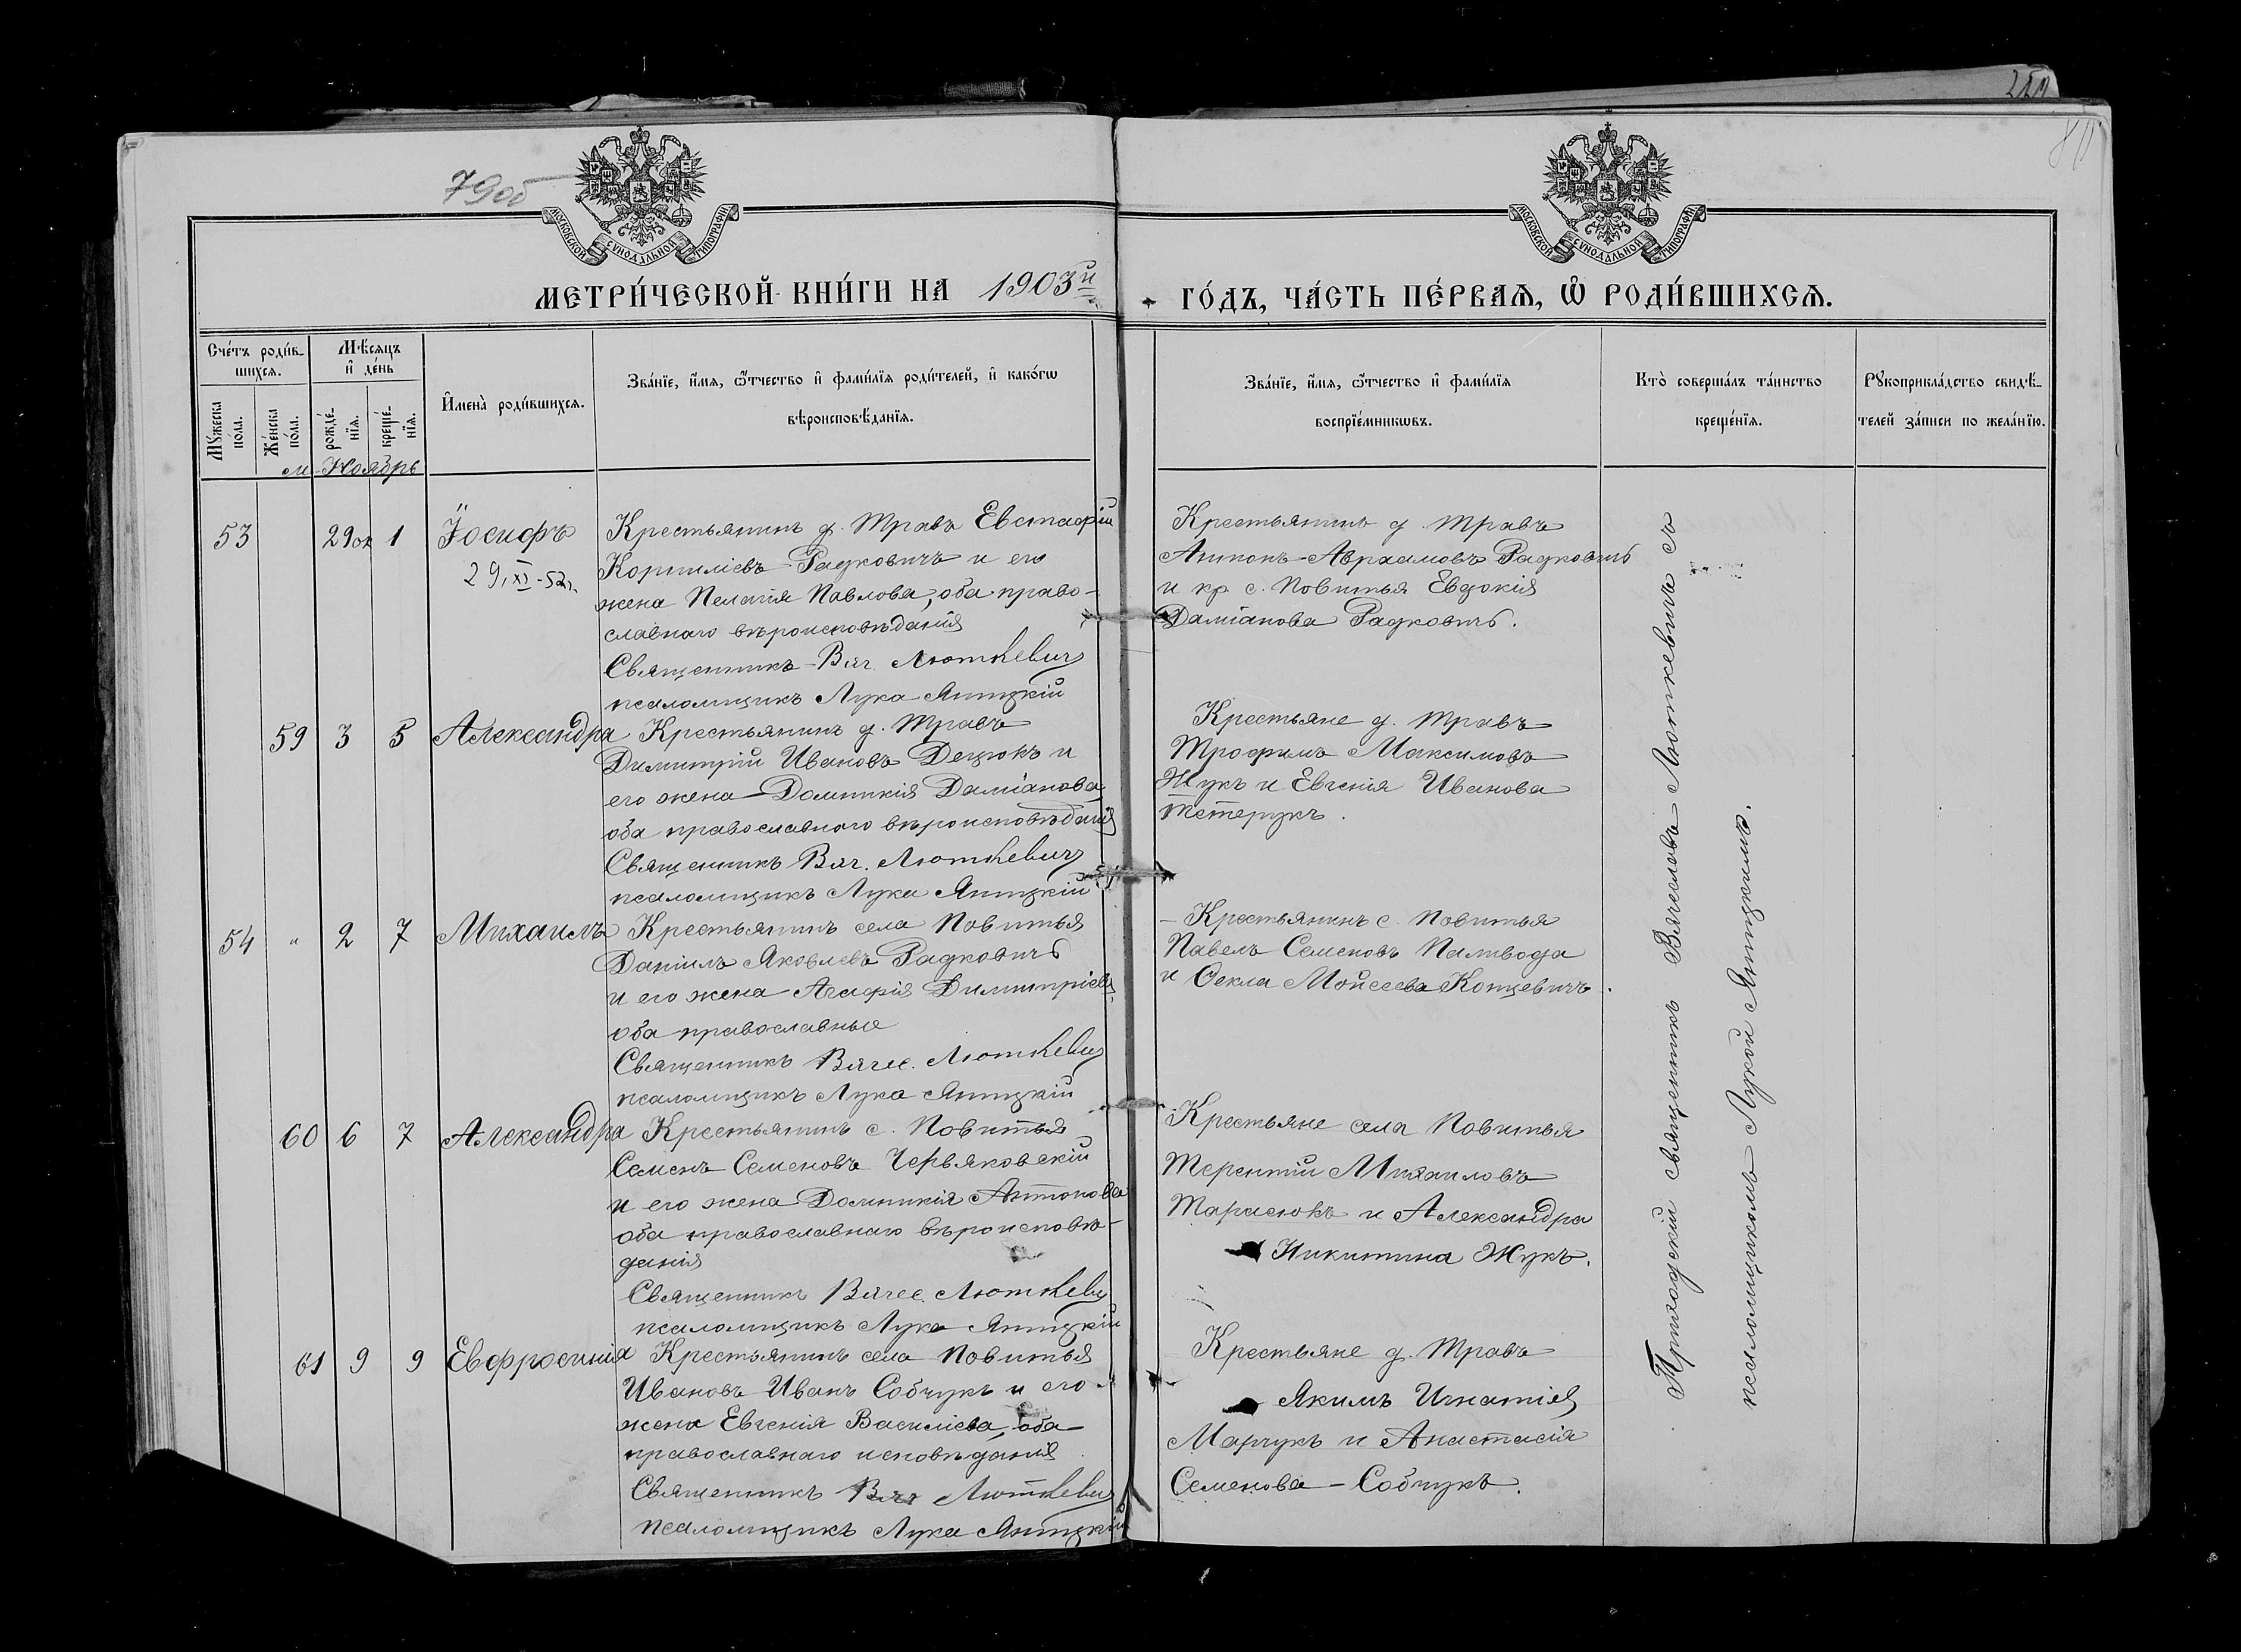 79об
250
80
МОСКОВСКОЙ СѴНОДАЛЬНОЙ ТИПОГРАФІИ
МОСКОВСКОЙ СѴНОДАЛЬНОЙ ТИПОГРАФІИ
МЕТРИ́ЧЕСКОЙ КНИ́ГИ НА 1903й ГО́ДЪ, ЧА́СТЬ ПЕ́РВАѦ, Ѽ РОДИ́ВШИХСѦ.
Сче́тъ роди́в-
шихсѧ.
Мꙋжеска
по́ла.
Же́нска
по́ла.
Мѣ́сѧцъ
и҆ де́нь
рожде́-
нїѧ.
креще́-
нїѧ.
И҆мена̀ роди́вшихсѧ.
Зва́нїе, и҆́мѧ, ѻ҆́тчество и҆ фами́лїѧ роди́телей, и҆ како́гѡ
вѣроисповѣ́данїѧ.
Зва́нїе, и҆́мѧ, ѻ҆́тчество и҆ фами́лїѧ
воспрїе́мникѡвъ.
Кто̀ соверша́лъ та́инство
креще́нїѧ.
Рꙋкоприкла́дство свидѣ́-
телей за́писи по жела́нїю.
м. Ноябрь
53 29 ок 1 Іосифъ
29.XI-52г.
Крестьянинъ д. Травъ Евстафій
Корниліевъ Радковичъ и его
жена Пелагія Павлова, оба право-
славнаго вѣроисповѣданія
Священникъ Вяч. Люткевичъ
псаломщикъ Лука Яницкій
Крестьянинъ д. Травъ
Антонъ Аврамовъ Радковичъ
и кр. с. Повитья Евдокія
Даміанова Радковичъ.
59 3 5 Александра
Крестьянинъ д. Травъ
Димитрій Ивановъ Децюкъ и
его жена Домникія Даміанова,
оба православного вѣроисповѣданія
Священникъ Вяч. Люткевичъ
псаломщикъ Лука Яницкій
Крестьяне д. Травъ
Трофимъ Максимовъ
Жукъ и Евгенія Иванова
Тетерукъ.
54 " 2 7 Михаилъ
Крестьянинъ села Повитья
Даніилъ Яковлевъ Радковичъ
и его жена Агафія Димитріева,
оба православные
Священникъ Вячес. Люткевич
псаломщикъ Лука Яницкій
Крестьянинъ с. Повитья
Павелъ Семеновъ Паливода
и Ѳекла Мойсеева Концевичъ.
60 6 7 Александра
Крестьянинъ с. Повитья
Семенъ Семеновъ Червяковскій
и его жена Домникія Антонова
оба православнаго вѣроисповѣ-
данія
Священникъ Вячес. Люткевич
псаломщикъ Лука Яницкій
Крестьяне села Повитья
Терентій Михаиловъ
Тарасюкъ и Александра
Никитина Жукъ.
61 9 9 Евфросинія
Крестьянинъ села Повитья
Ивановъ Иванъ Собчукъ и его
жена Евгенія Василіева, оба
православнаго исповѣданія
Священникъ Вяч Люткевич
псаломщикъ Лука Яницкій
Крестьяне д. Травъ
Якимъ Игнатіев
Марчукъ и Анастасія
Семенова Собчукъ.
Приходскій священникъ Вячеславъ Люткевичъ съ
псаломщикомъ Лукой Яницкимъ.